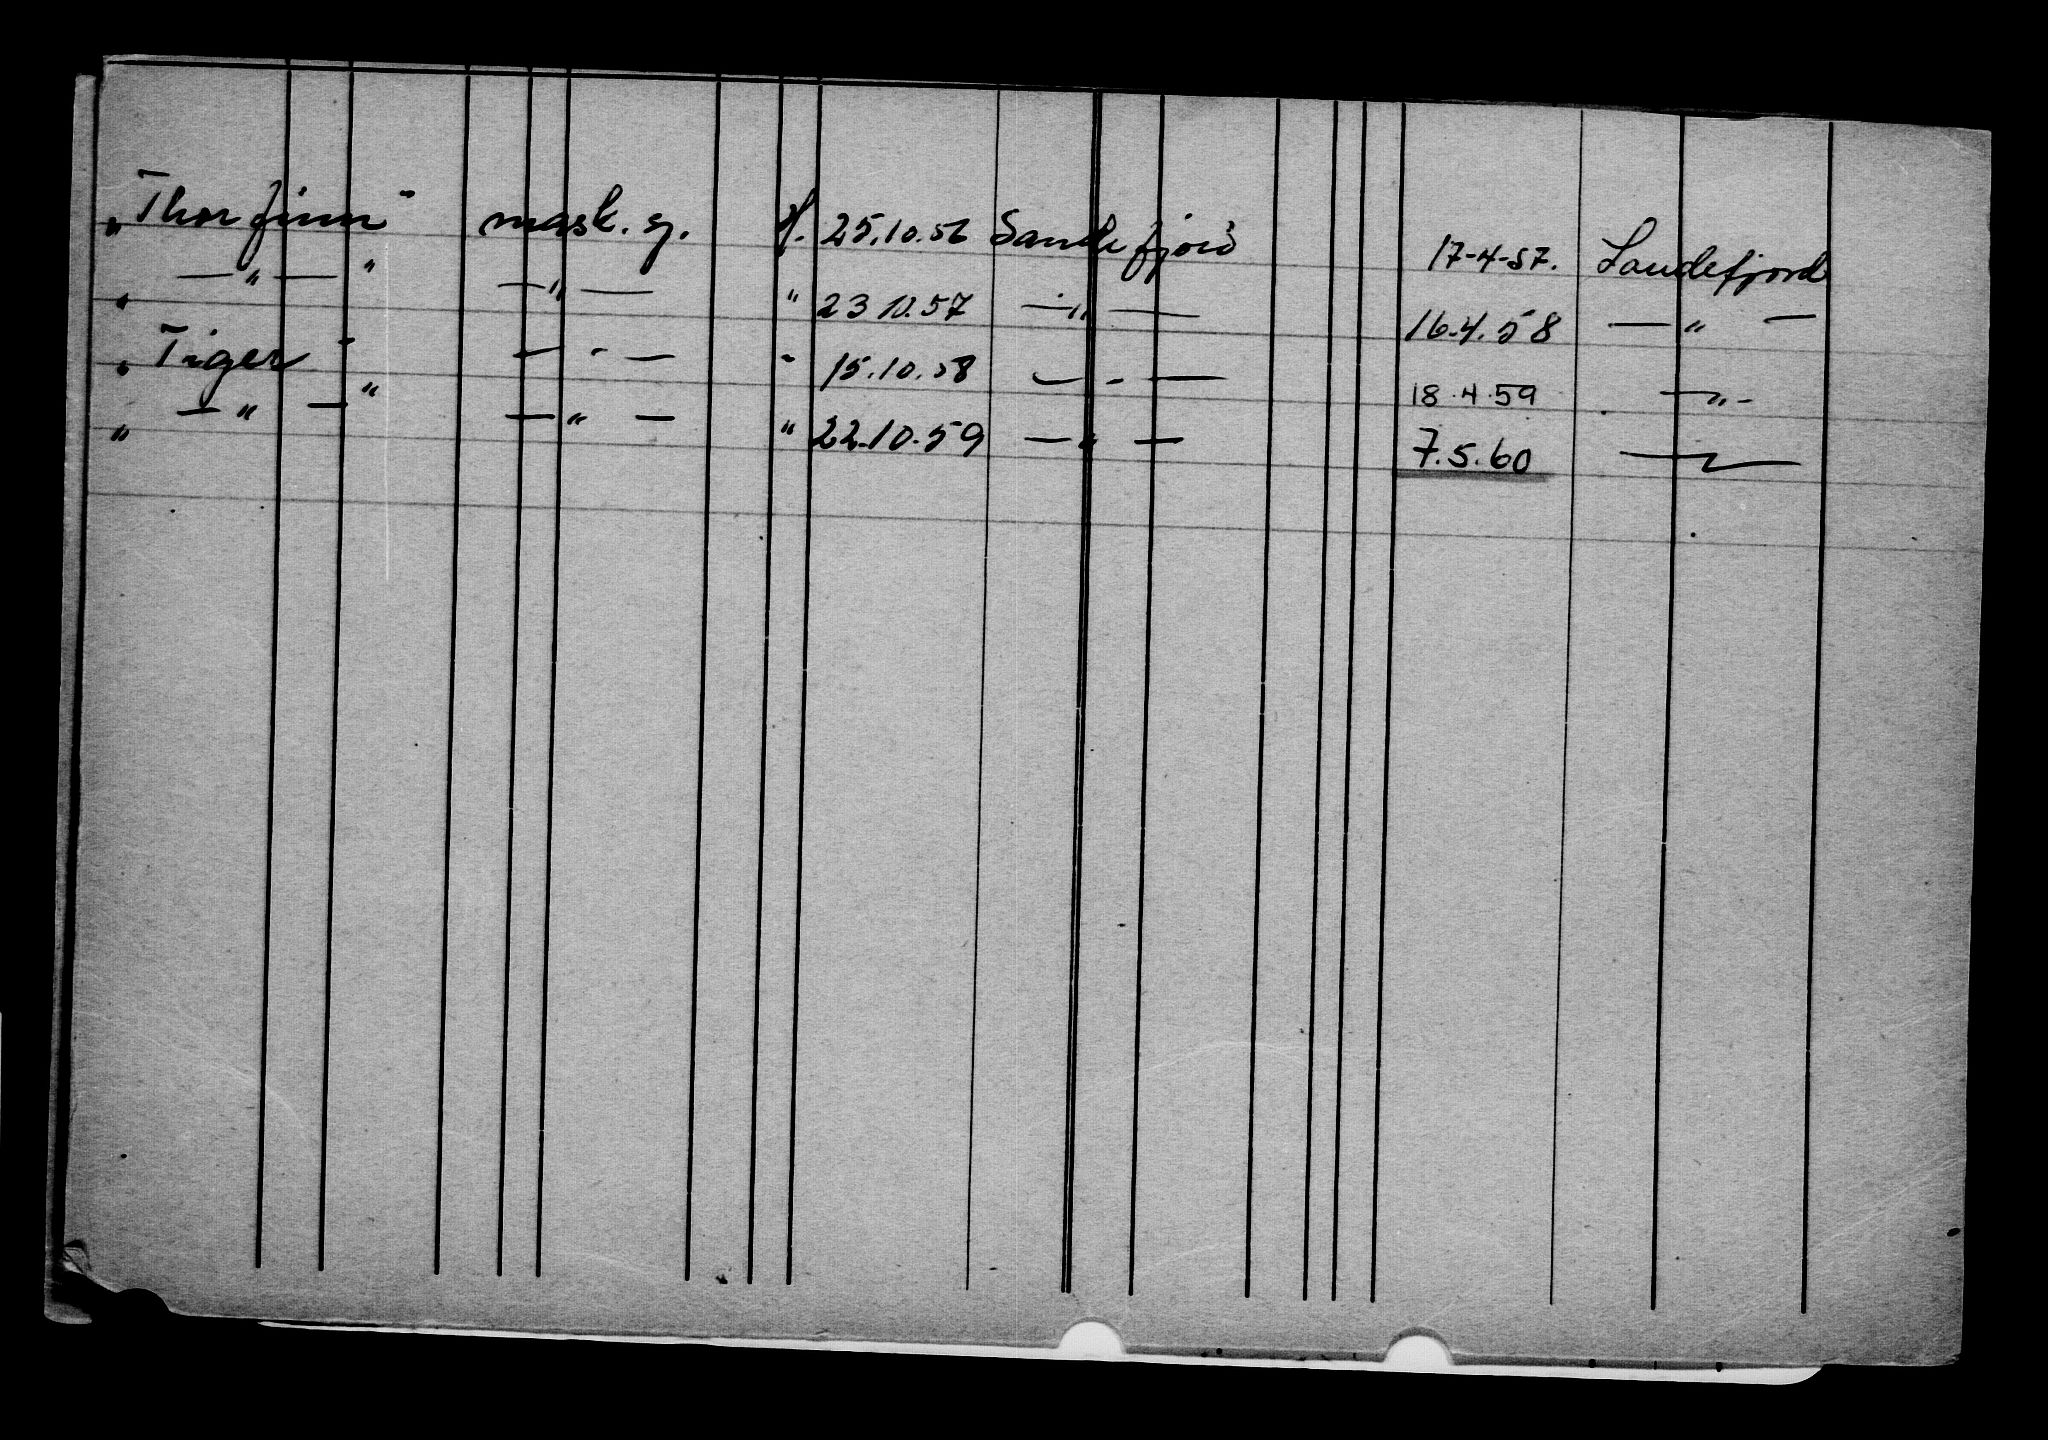 „Thorfinn" mask. H. 25.10.56 Sandefjord 17-4-57. Sandefjord
„ — " — " — " — " 23 10.57 — " — 16.4.58 — " —
„Tiger" — " — " 15.10.58 — " — 18.4.59 — " —
„ — " — " — " — " 22.10.59 — " — 7.5.60 — " —